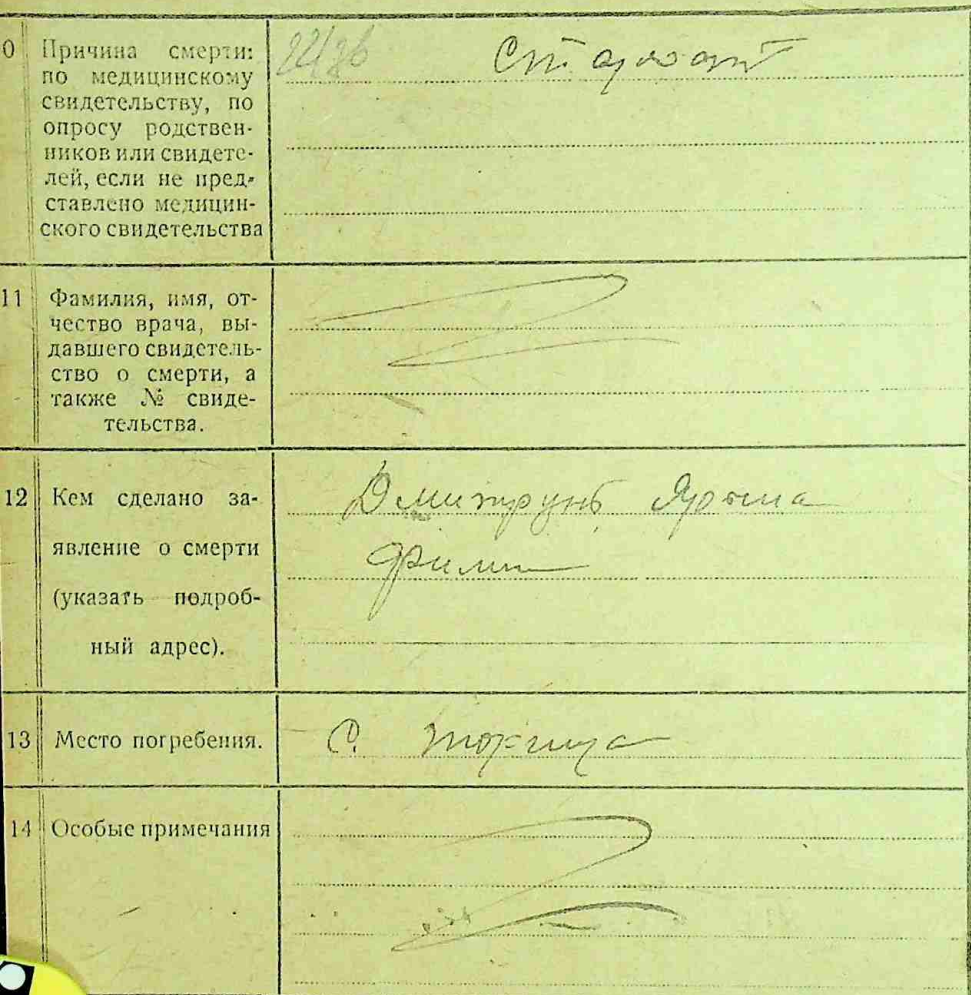 0 Причина смерти:
по медицинскому
свидетельству, по
опросу родствен-
ников или свидете-
лей, если не пред-
ставлено медицин-
ского свидетельства
11 Фамилия, имя, от-
чество врача, вы-
давшего свидетель-
ство о смерти, а
также № свиде-
тельства.
12 Кем сделано за-
явление о смерти
(указать подроб-
ный адрес).
Дмитрунь
13 Место погребения.
С.
14 Особые примечания